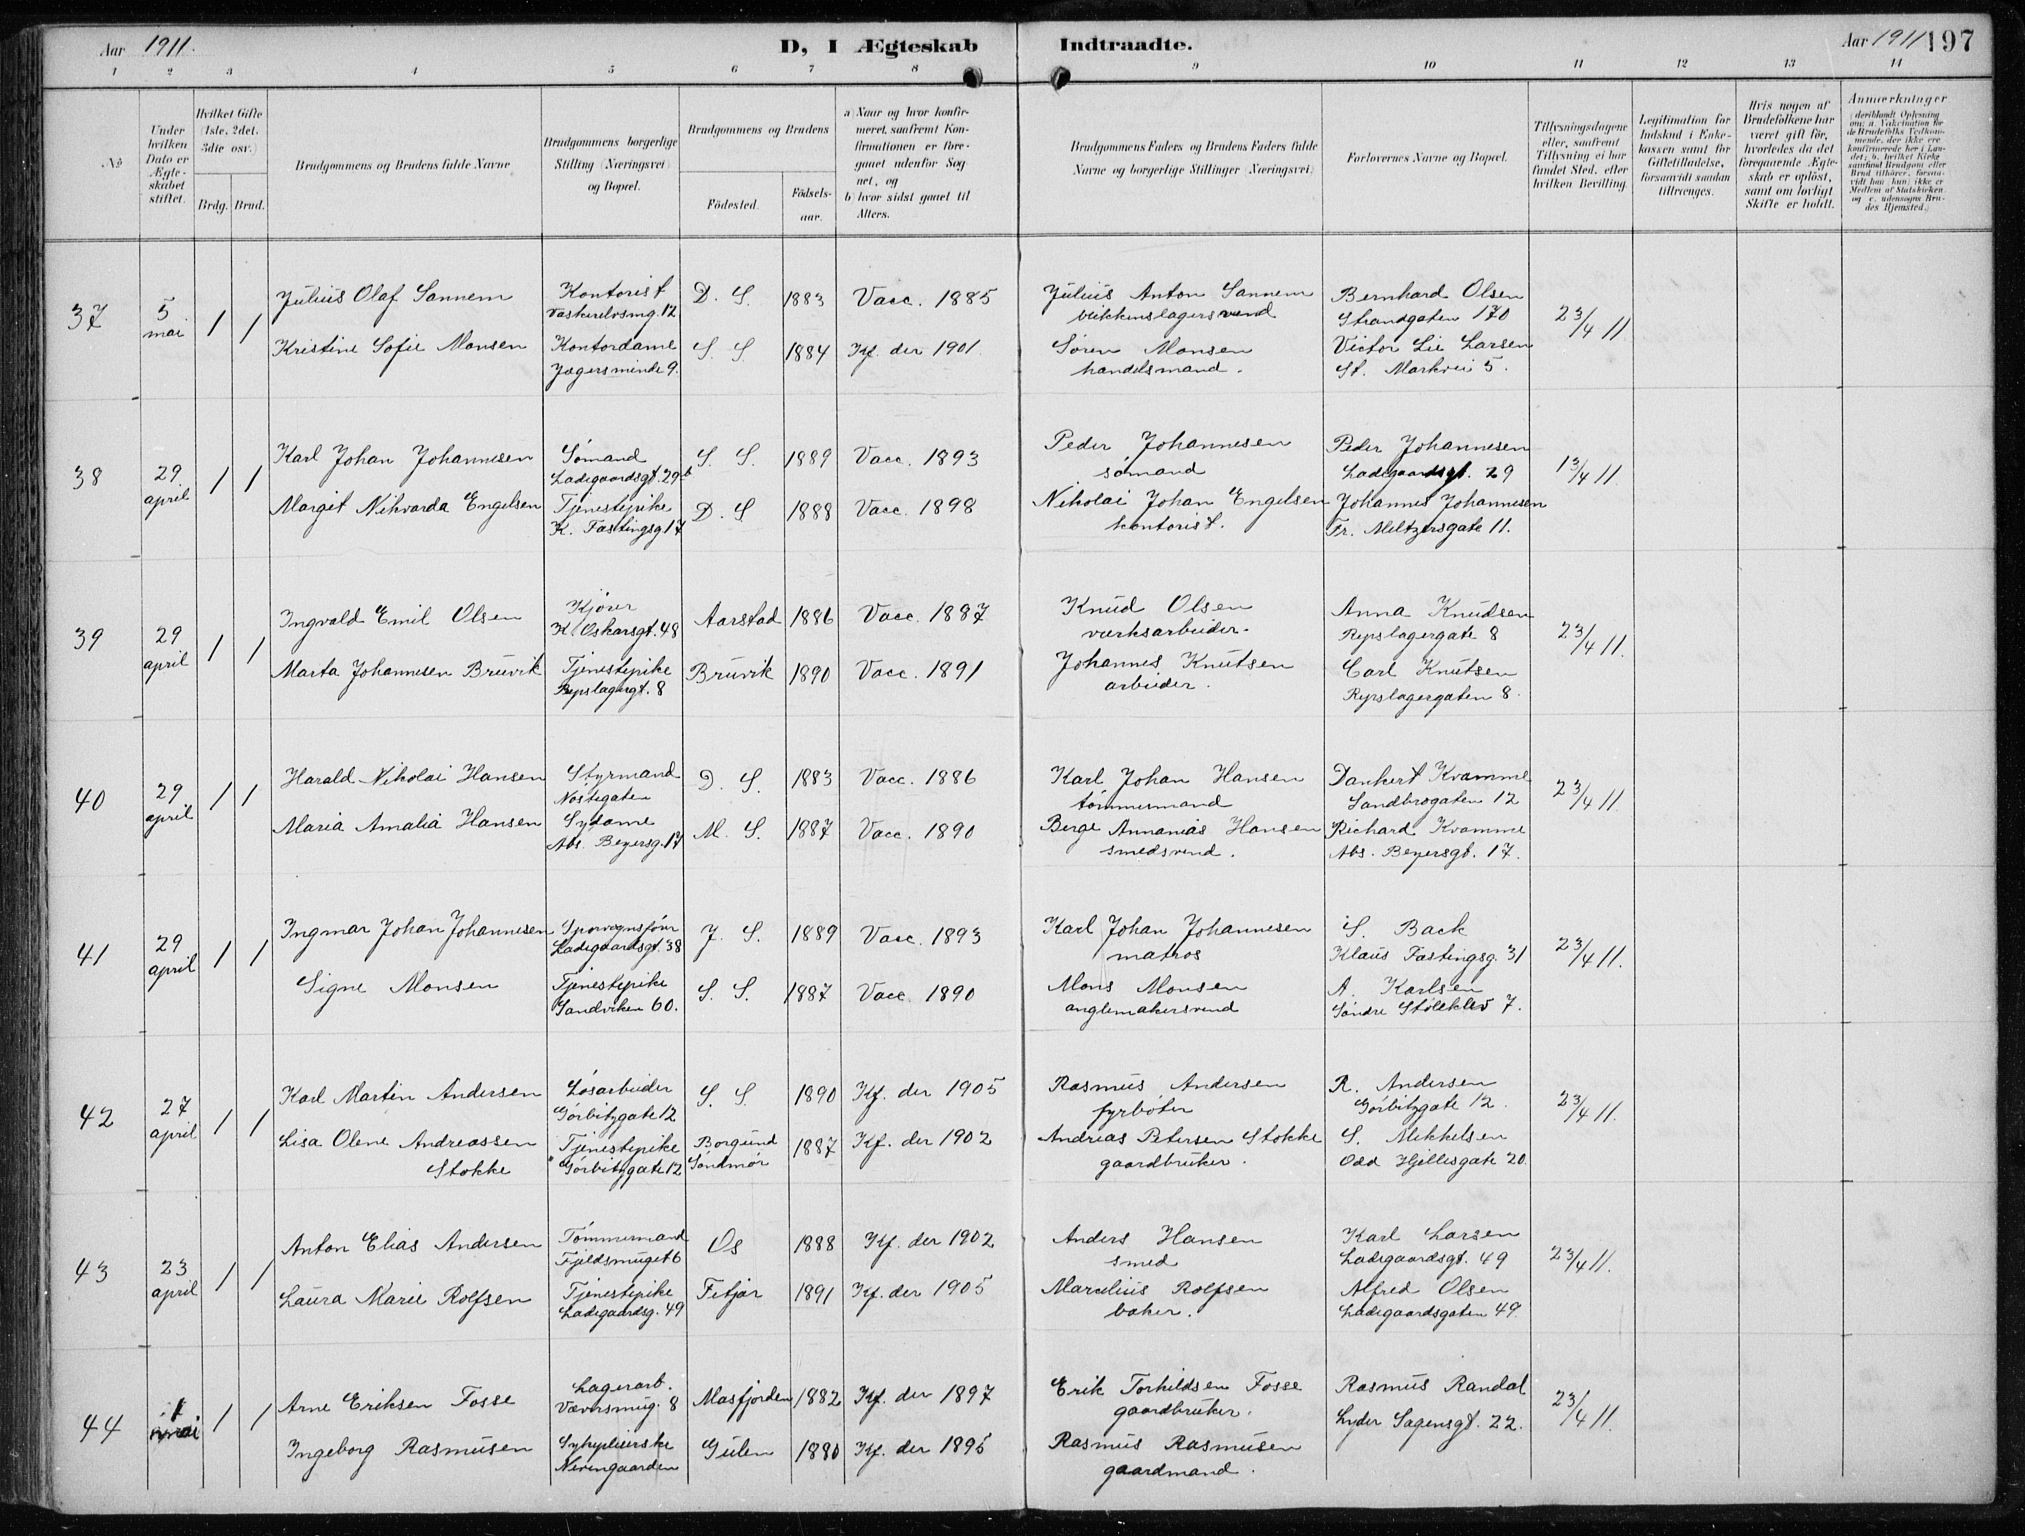 Aar 1911.
D, I Ægteskab Indtraadte.
Aar 1911 197
1 2 3 4 5 6 7 8 9 10 11 12 13 14
No
Under hvilken Dato er Ægteskabet stiftet.
Hvilket Gifte (1ste, 2det, 3die osv.)
Brdg. Brud.
Brudgommens og Brudens fulde Navne
Brudgommens borgerlige Stilling (Næringsvei) og Bopæl.
Brudgommens og Brudens
Födested.
Födselsaar.
a) Naar og hvor konfirmeret, saafremt Konfirmationen er foregaaet udenfor Sognet, og
b) hvor sidst gaaet til Alters.
Brudgommens Faders og Brudens Faders fulde Navne og borgerlige Stillinger (Næringsvei)
Forlovernes Navne og Bopæl.
Tillysningsdagene eller, saafremt Tillysning ei har fundet Sted, efter hvilken Bevilling.
Legitimation for Indskud i Enkekassen samt for Giftetilladelse, forsaavidt saadan tiltrænges.
Hvis nogen af Brudefolkene har været gift för, hvorledes da det foregaaende Ægteskab er oplöst, samt om lovligt Skifte er holdt.
Anmærkninger
37 5 mai 1 1
Julius Olaf Sannem Kontorist D. S. 1883 Vacc. 1885 Julius Anton Sannem Bernhard Olsen 23/4 11
Vaskerelvsmg. 12 blikkenslagersvend Strandgaten 170
Kristine Sofie Monsen Kontordame S. S 1884 Kf. der 1901. Sören Monsen Victor Lie Larsen
Jægersminde 9. handelsmand. St. Markvei 5.
38 29 april 1 1
Karl Johan Johannesen Sömand S. S. 1889 Vacc. 1893 Peder Johannesen Peder Johannesen 13/4 11.
Ladegaardsgt. 29b sömand Ladegaardsgt. 29
Margit Nikvarda Engelsen Tjenestepike D. S 1888 Vacc. 1898 Nikolai Johan Engelsen Johannes Johannesen
K. Fastingsg 17 kontorist. Fr. Meltzersgate 11.
39 29 april 1 1
Ingvald Emil Olsen Kjörer Aarstad 1886 Vacc. 1887 Knud Olsen Anna Knudsen 23/4 11.
K. Oskarsgt. 48 værksarbeider. Repslagergate 8
Marta Johannesen Bruvik Tjenestepike Bruvik 1890 Vacc. 1891 Johannes Knutsen Carl Knutsen
Repslagergt. 8 arbeider. Repslagergaten 8.
40 29 april 1 1
Harald Nikolai Hansen Styrmand D. S. 1883 Vacc. 1886 Karl Johan Hansen Dankert Kvamme 23/4 11.
Nöstegaten tömmermand Sandbrogaten 12
Maria Amalia Hansen Sydame M. S. 1887 Vacc. 1890 Berge Annanias Hansen Richard Kvamme
Abs. Beyersg. 17 smedsvend. Abs. Beyersgt. 17.
41 29 april 1 1
Ingmar Johan Johannesen J. S. 1889 Vacc. 1893 Karl Johan Johannesen S. Back 23/4 11.
Ladegaardsgt. 38 matros Klaus Fastingsg. 31
Signe Monsen Tjenestepike S. S. 1887 Vacc. 1890 Mons Monsen A. Karlsen
Sandviken 60. anglemakersvend Söndre 7.
42 27 april 1 1
Karl Martin Andersen Lösarbeider S. S 1890 Kf. der 1905 Rasmus Andersen R. Andersen 23/4 11.
Görbitzgate 12 fyrböter Görbitzgate 12.
Lisa Olene Andreassen Tjenestepike Borgund 1887 Kf. der 1902 Andreas Petersen Stokke S. Mikkelsen
Stokke Görbitzgate 12 Söndmör gaardbruker. Odd Hjellesgate 20.
43 23 april 1 1
Anton Elias Andersen Tömmermand Os 1888 Kf. der 1902 Anders Hansen Karl Larsen 23/4 11.
Fjeldsmuget 6 smed Ladegaardsgt. 49
Laura Marie Rolfsen Tjenestepike Fitjar 1891 Kf. der 1905 Marselius Rolfsen Alfred Olsen
Ladegaardsg. 49 baker. Ladegaardsgaten 49.
44 1 mai 1 1
Arne Eriksen Fosse Lagerarb. Masfjorden 1882 Kf. der 1897 Erik Torkildsen Fosse Rasmus Randal 23/4 11.
Væversmug. 8 gaardbruker. Lyder Sagensgt. 22.
Ingeborg Rasmusen Sykepleierske Gulen 1880 Kf. der 1895 Rasmus Rasmusen
gaardmand.